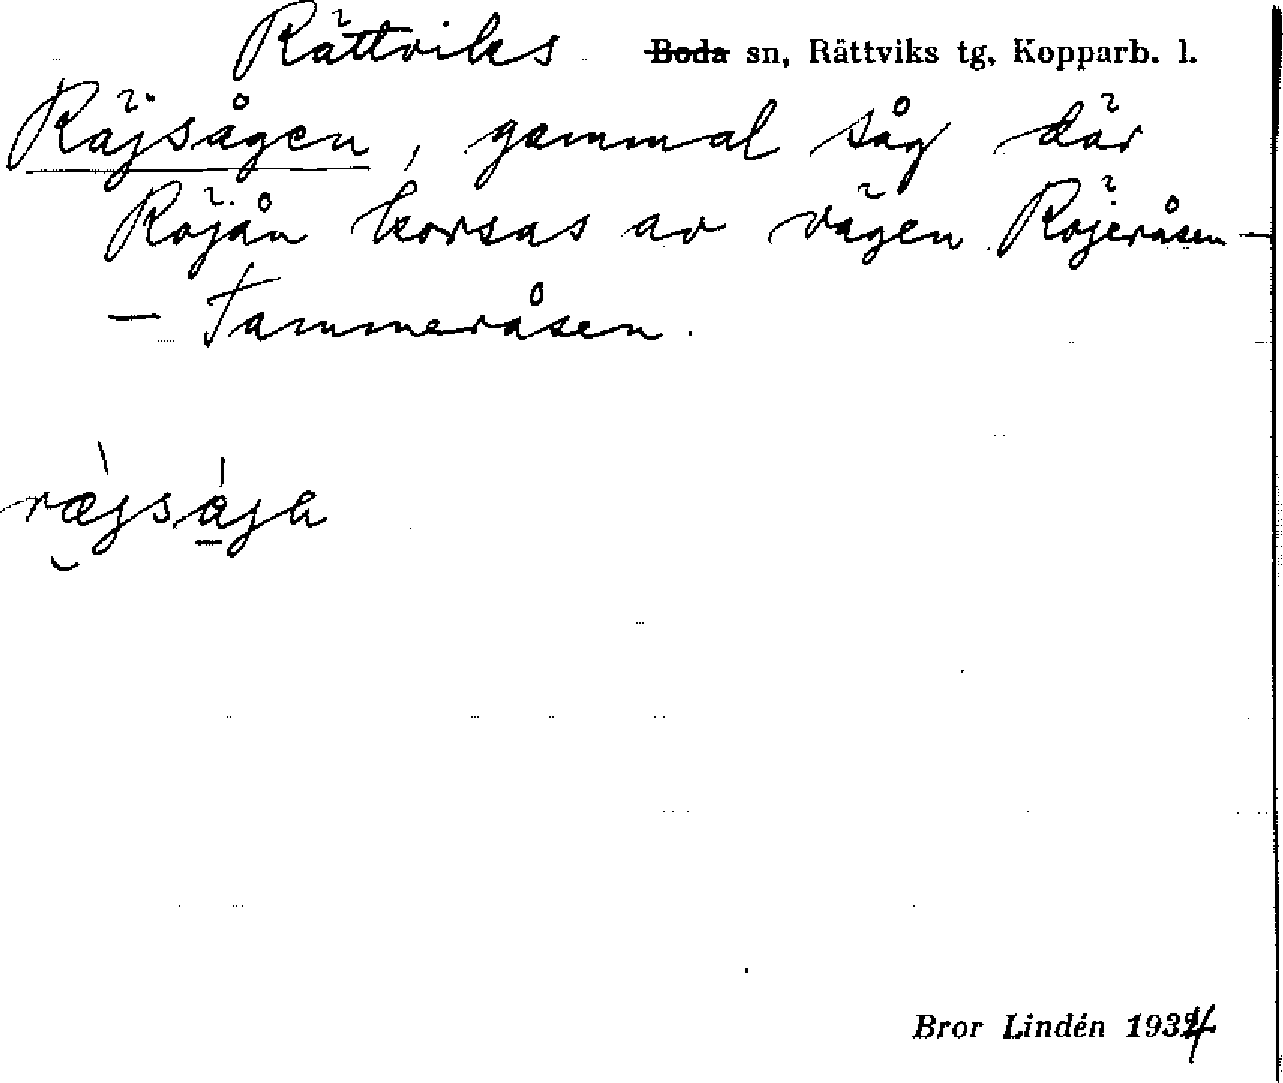 Rättviks ~~Boda~~ sn, Rättviks tg, Kopparb. l.
Räjsågen, gammal såg där
Röjån korsas av vägen Röjeråsen –
– Tammeråsen.
Bror Lindén 1934